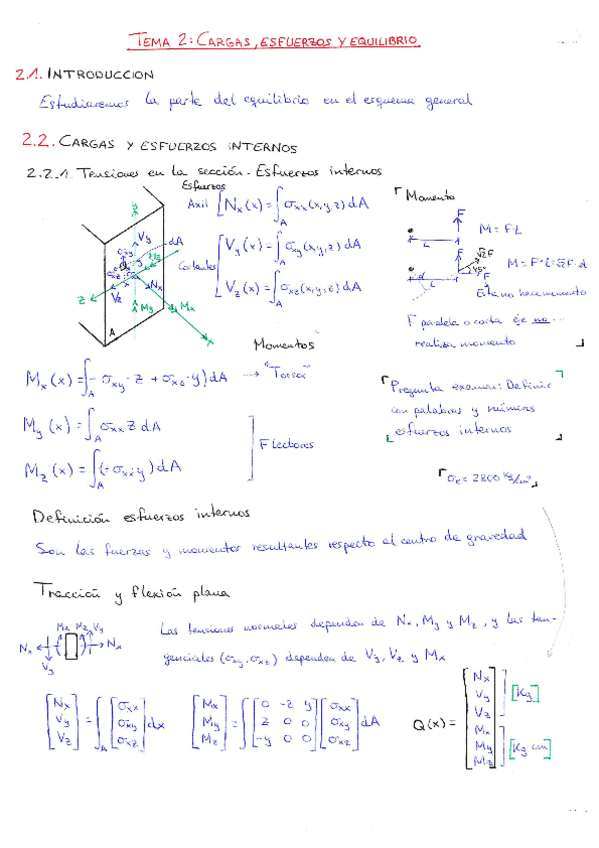 TEMA 2: CARGAS, ESFUERZOS Y EQUILIBRIO
2.1. INTRODUCCION
Estudiaremos la parte del equilibrio en el esquema general
2.2. CARGAS Y ESFUERZOS INTERNOS
2.2.1. Tensiones en la sección. Esfuerzos internos
Esfuerzos
Axil [Nx(x) = ∫A σxx(x,y,z) dA
Cortantes [Vy(x) = ∫A σxy(x,y,z) dA
Vz(x) = ∫A σxz(x,y,z) dA
y Vy dA σxy σxz Mz Nx z Vz My Mx x A
Momento
F
M = F·L
L
F √2F 45°
M = F·L = √2F·d
d L
Este no hace momento
F paralela o corta eje no...
realiza momento
Momentos
Mx(x) = ∫A (-σxy·z + σxz·y) dA → "Torsor"
My(x) = ∫A σxx z dA
Mz(x) = ∫A (-σxx·y) dA
Flectores
Pregunta examen: Definir
con palabras y números
esfuerzos internos
σe = 2800 Kg/cm²
Definición esfuerzos internos
Son las fuerzas y momentos resultantes respecto al centro de gravedad
Tracción y flexión plana
Nx Mz Mz Vy Nx Vy
Las tensiones normales dependen de Nx, My y Mz, y las tan-
genciales (σxy, σxz) dependen de Vy, Vz y Mx
[Nx Vy Vz] = ∫A [σxx σxy σxz] dx
[Mx My Mz] = ∫ [0 -z y z 0 0 -y 0 0] [σxx σxy σxz] dA
Q(x) = [Nx Vy Vz Mx My Mz] [Kg] [Kg cm]